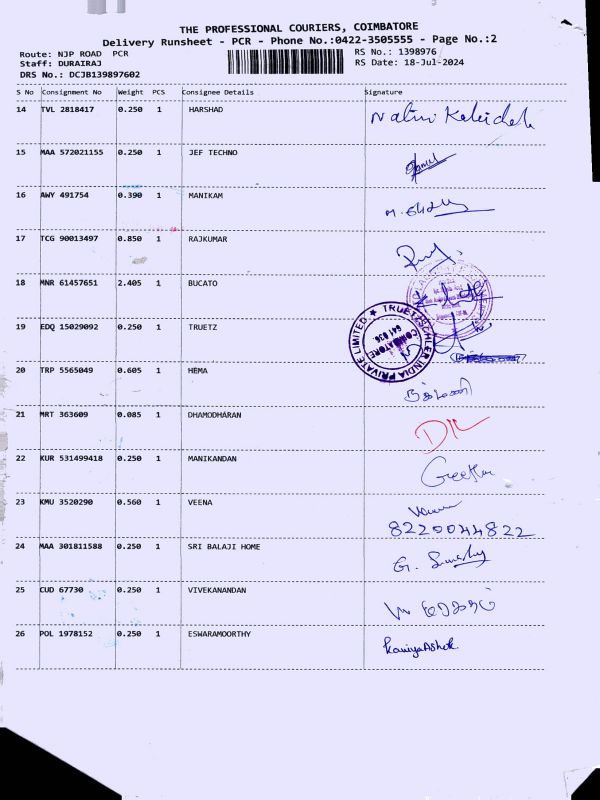 THE PROFESSIONAL COURIERS, COIMBATORE
Delivery Runsheet - PCR - Phone No.:0422-3505555 - Page No.:2
Route: NJP ROAD PCR
Staff: DURAIRAJ
DRS No.: DCJB139897602
RS No.: 1398976
RS Date: 18-Jul-2024
S No Consignment No Weight PCS Consignee Details Signature
14 TVL 2818417 0.250 1 HARSHAD
15 MAA 572021155 0.250 1 JEF TECHNO
16 AWY 491754 0.390 1 MANIKAM
17 TCG 90013497 0.850 1 RAJKUMAR
18 MNR 61457651 2.405 1 BUCATO
19 EDQ 15029092 0.250 1 TRUETZ
TRUETZSCHLER INDIA PRIVATE LIMITED ★
COIMBATORE
641 036
20 TRP 5565049 0.605 1 HEMA
21 MRT 363609 0.085 1 DHAMODHARAN
22 KUR 531499418 0.250 1 MANIKANDAN
23 KMU 3520290 0.560 1 VEENA
8220044822
24 MAA 301811588 0.250 1 SRI BALAJI HOME
25 CUD 67730 0.250 1 VIVEKANANDAN
26 POL 1978152 0.250 1 ESWARAMOORTHY KaniyaAshok